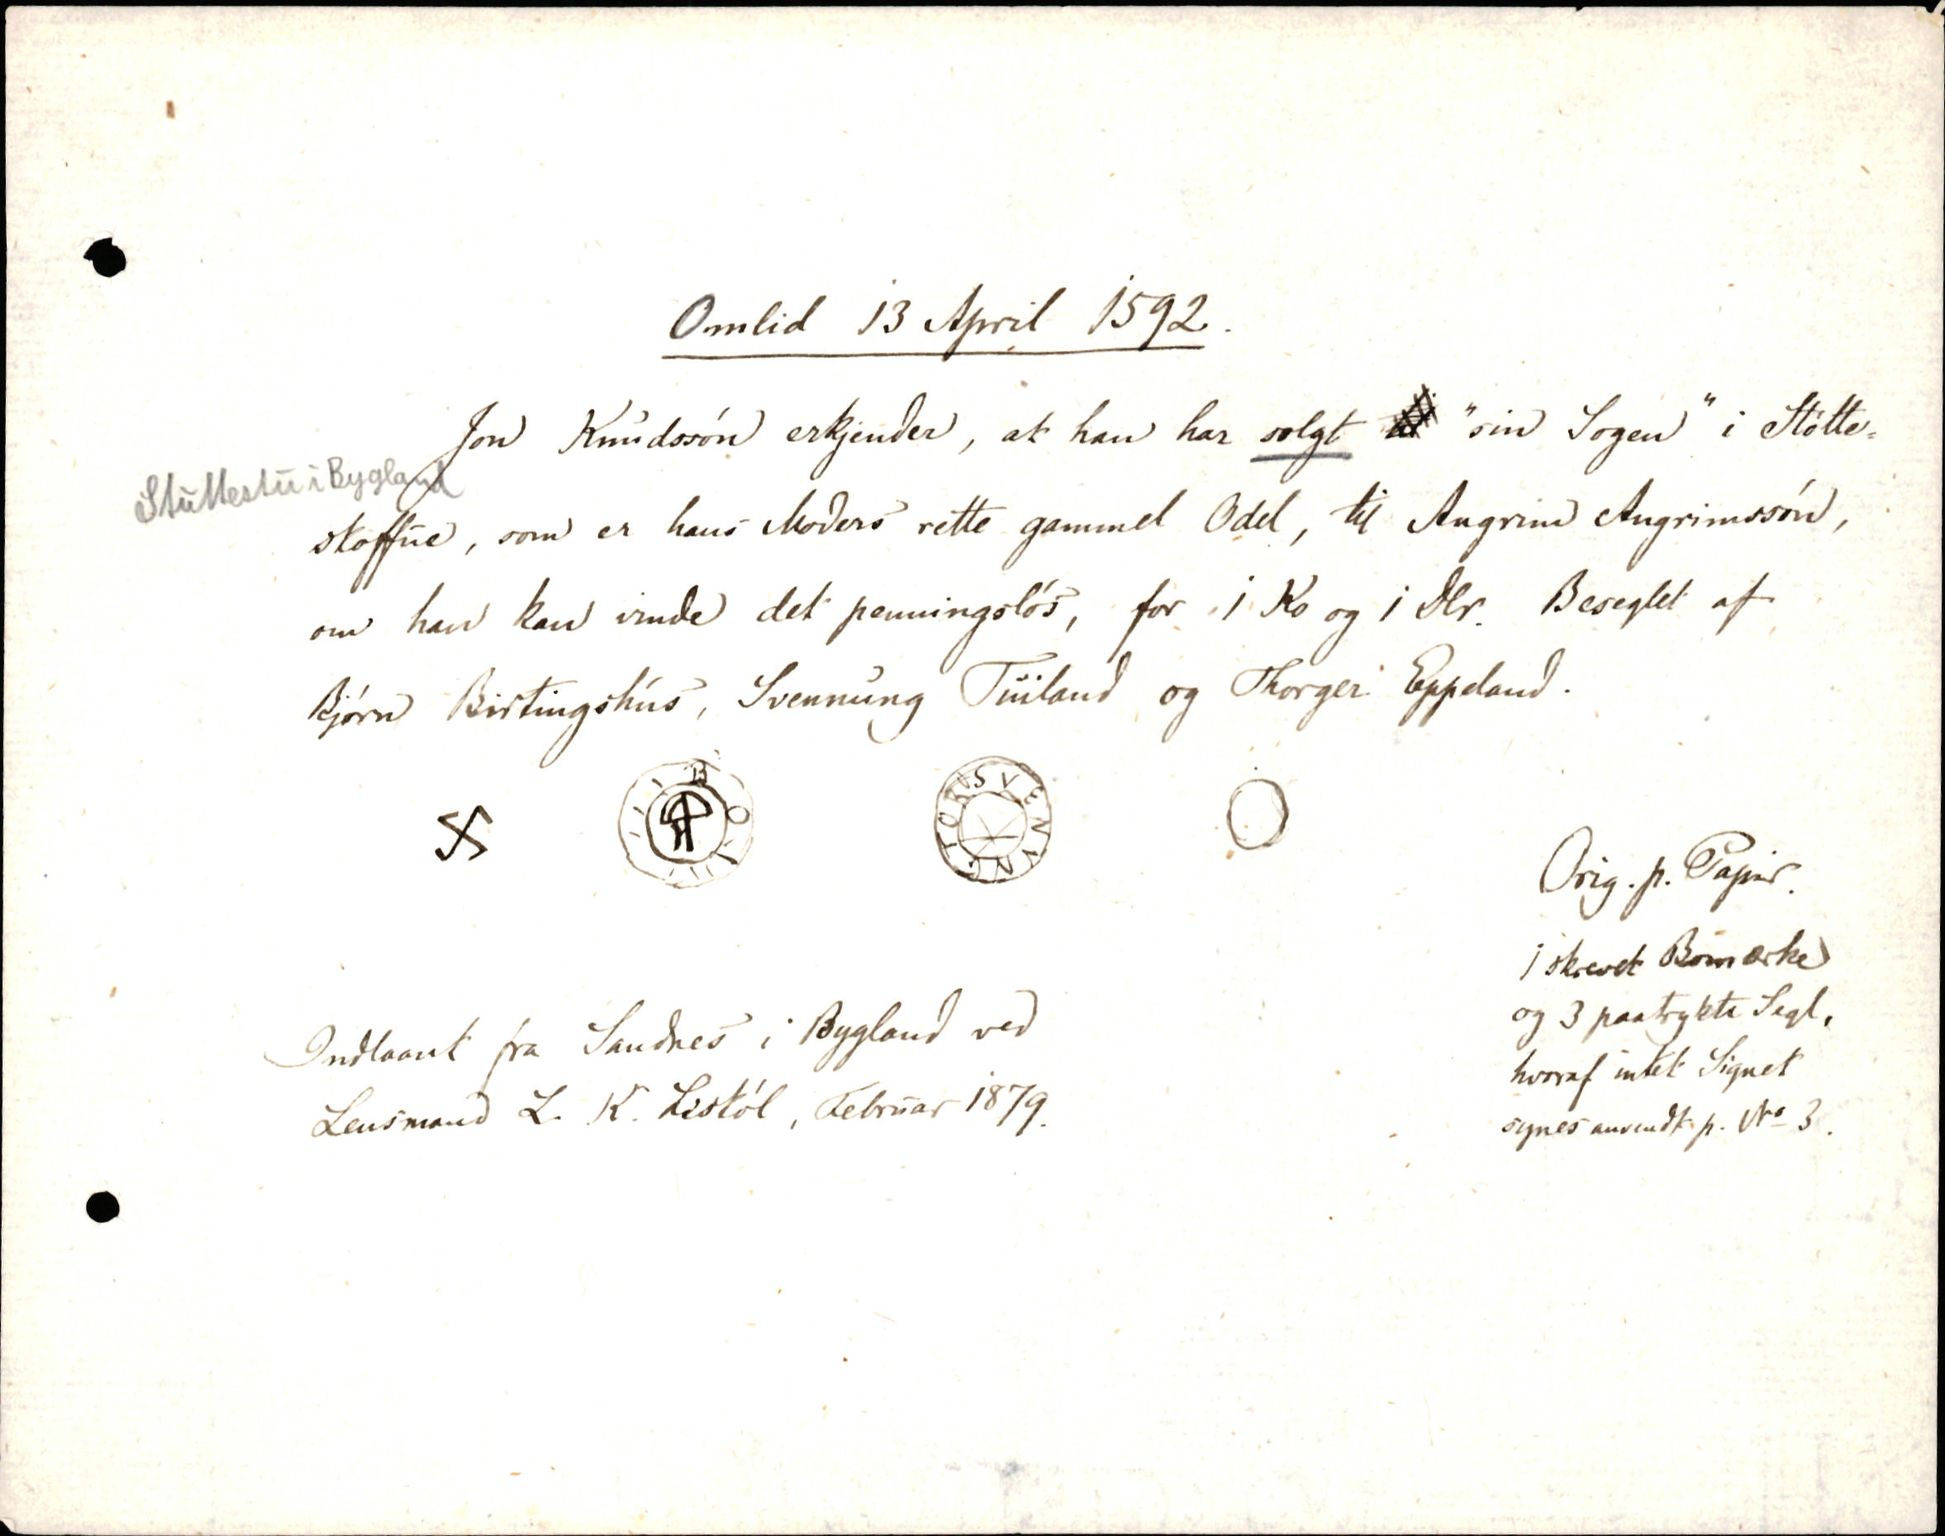 Omlid 13 April 1592.
Jon Knudssón erkjender, at han har solgt "sin Sogen" i Stótte-
Stuttestu i Bygland
stoffue, som er hans Moders rette gammel Odel, til Angrim Angrimssón,
om han kan vinde det penningslós, for 1 Ko og 1 Dlr. Beseglet af
Bjórn Birtingshus, Svennung Tuiland og Thorger Eppeland.
B O
SVENVNG TORS
Orig. p. Papir.
1 skrevet Bomærke
og 3 paatrykte Segl,
hvoraf intet Signet
synes anvendt p. No 3.
Indlaant fra Sandnes i Bygland ved
Lensmand L. K. Liskól, Februar 1879.